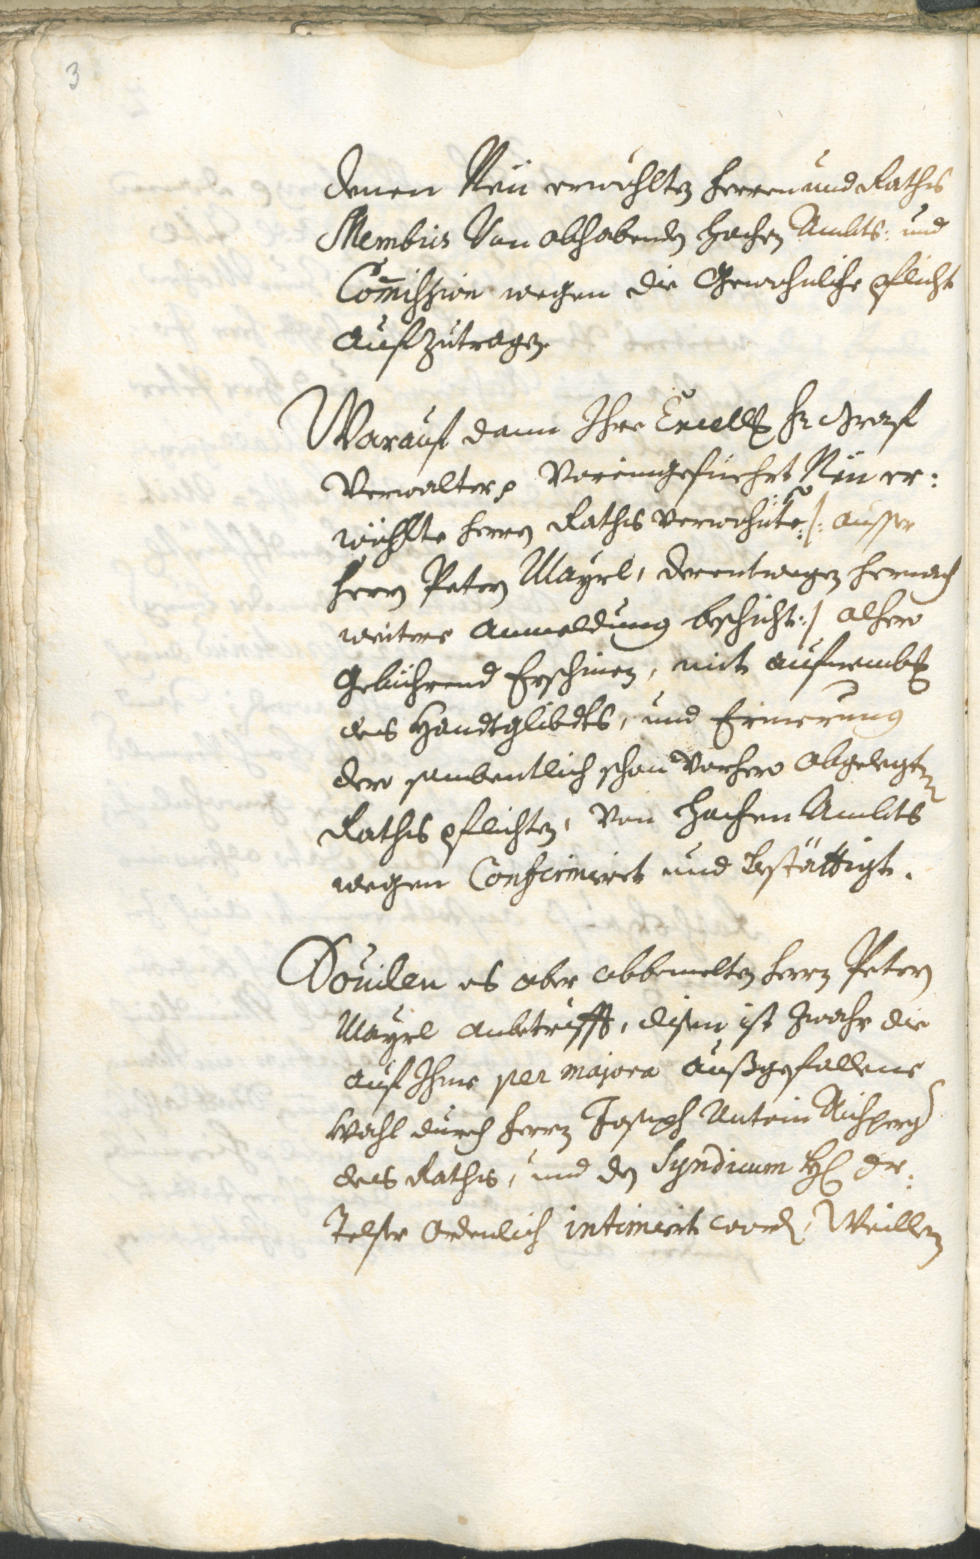 3
denen Neü erwöhlten herren und Raths
Membris Von obhabenden hochen Ambts: und
Com̄ihsion wegen die Gewohnliche pflicht
aufzutragen.
Warauf dann Ihre Excell: h: Graf
Verwalter Voreingefüehrt Neü er:
wöhlte herrn Raths Verwohnte |: ausser
herrn Petern Mayrl, derentwegen hernach
weitere anmeldung beschicht :| alhero
Gebührend Erschinen, mit aufnembung
des Handtglibdts, und Erinerung
dero sambentlich schon Vorhero abgelegten
Raths pflichten, Von hochen Ambts
wegen Confirmiert und bestättigt.
Souilen es aber obbemelten herrn Petern
Mayrl anbetrifft, disem ist zwahr die
auf Ihme per majora außgefallene
Wahl durch herrn Joseph Antoni Aichperg
des Raths, und den Syndicum
ordenlich intimiert word, Weillen